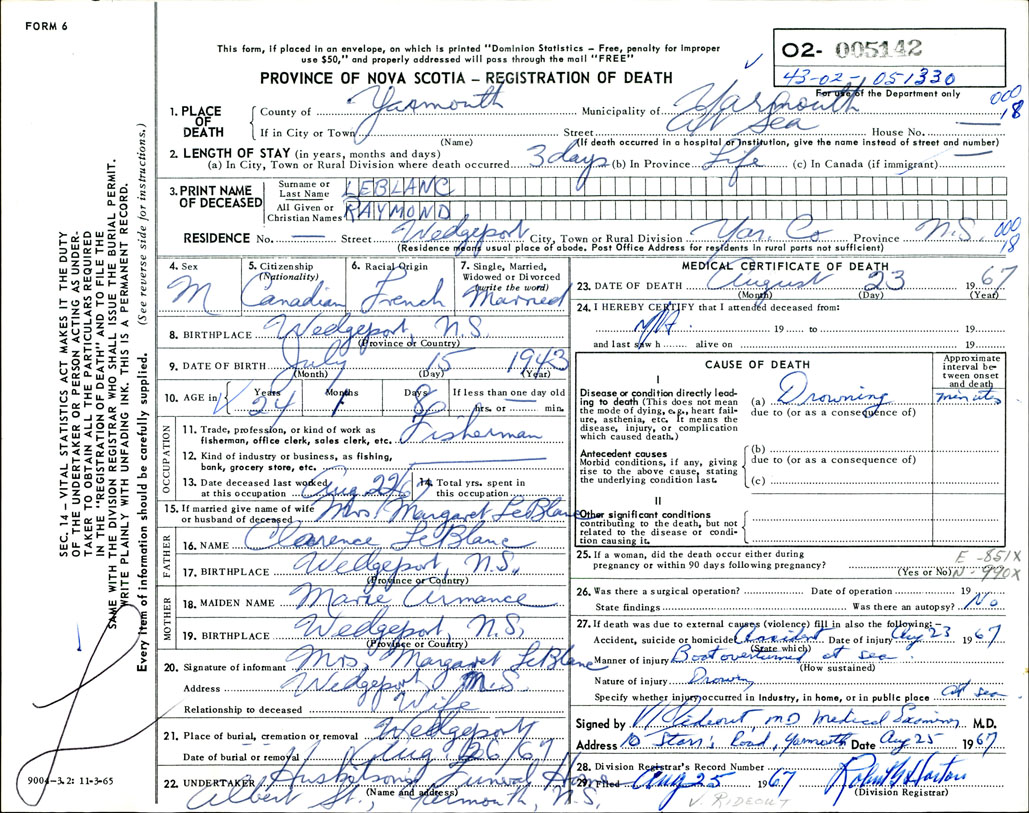 FORM 6
This form, if placed in an envelope, on which is printed "Dominion Statistics – Free, penalty for improper
use $50," and properly addressed will pass through the mail "FREE"
PROVINCE OF NOVA SCOTIA – REGISTRATION OF DEATH
O2- 005142
43-02-1 051330
For use of the Department only
000
18
1. PLACE OF DEATH
County of Yarmouth Municipality of Yarmouth
If in City or Town Street At Sea House No.
(Name) (If death occurred in a hospital or institution, give the name instead of street and number)
2. LENGTH OF STAY (in years, months and days)
(a) In City, Town or Rural Division where death occurred 3 days (b) In Province Life (c) In Canada (if immigrant) —
3. PRINT NAME OF DECEASED
Surname or Last Name LEBLANC
All Given or Christian Names RAYMOND
RESIDENCE No. — Street Wedgeport City, Town or Rural Division Yar. Co Province N.S.
(Residence means usual place of abode. Post Office Address for residents in rural parts not sufficient)
000
18
4. Sex M
5. Citizenship (Nationality) Canadian
6. Racial Origin French
7. Single, Married, Widowed or Divorced (write the word) Married
8. BIRTHPLACE Wedgeport, N.S.
(Province or Country)
9. DATE OF BIRTH July 15 1943
(Month) (Day) (Year)
10. AGE in Years 24 Months 1 Days 8 If less than one day old
hrs. or min.
OCCUPATION
11. Trade, profession, or kind of work as
fisherman, office clerk, sales clerk, etc. Fisherman
12. Kind of industry or business, as fishing,
bank, grocery store, etc.
13. Date deceased last worked
at this occupation Aug 22/67
14. Total yrs. spent in
this occupation
15. If married give name of wife
or husband of deceased Mrs. Margaret LeBlanc
FATHER
16. NAME Clarence LeBlanc
17. BIRTHPLACE Wedgeport, N.S.,
(Province or Country)
MOTHER
18. MAIDEN NAME Marie Armance
19. BIRTHPLACE Wedgeport, N.S.
(Province or Country)
20. Signature of informant Mrs, Margaret LeBlanc
Address Wedgeport N.S.
Relationship to deceased Wife
21. Place of burial, cremation or removal Wedgeport
Date of burial or removal Aug 26/67
22. UNDERTAKER Huskilson's Funeral Home
(Name and address)
Albert St., Yarmouth, N.S.
MEDICAL CERTIFICATE OF DEATH
23. DATE OF DEATH August 23 1967
(Month) (Day) (Year)
24. I HEREBY CERTIFY that I attended deceased from:
19 to 19
and last saw h alive on 19
CAUSE OF DEATH
Approximate interval between onset and death
I
Disease or condition directly leading to death (This does not mean
the mode of dying, e.g., heart failure, asthenia, etc. It means the
disease, injury, or complication
which caused death.)
(a) Drowning minutes
due to (or as a consequence of)
Antecedent causes
Morbid conditions, if any, giving
rise to the above cause, stating
the underlying condition last.
(b)
due to (or as a consequence of)
(c)
II
Other significant conditions
contributing to the death, but not
related to the disease or condition causing it.
25. If a woman, did the death occur either during
pregnancy or within 90 days following pregnancy?
(Yes or No)
E -851X
N - 990X
26. Was there a surgical operation? Date of operation 19
State findings Was there an autopsy? No
27. If death was due to external causes (violence) fill in also the following:–
Accident, suicide or homicide Accident Date of injury Aug 23 1967
(State which)
Manner of injury Boat overturned at sea.
(How sustained)
Nature of injury Drown
Specify whether injury occurred in Industry, in home, or in public place at sea
Signed by V Rideout MD Medical Examiner M.D.
Address 10 Starr's Road, Yarmouth Date Aug 25 1967
28. Division Registrar's Record Number
29. Filed Aug 25 1967
(Division Registrar)
V. RIDEOUT
SEC. 14 – VITAL STATISTICS ACT MAKES IT THE DUTY
OF THE UNDERTAKER OR PERSON ACTING AS UNDER-
TAKER TO OBTAIN ALL THE PARTICULARS REQUIRED
IN THE "REGISTRATION OF DEATH" AND TO FILE THE
SAME WITH THE DIVISION REGISTRAR WHO SHALL ISSUE THE BURIAL PERMIT.
WRITE PLAINLY WITH UNFADING INK. THIS IS A PERMANENT RECORD.
Every item of information should be carefully supplied. (See reverse side for instructions.)
9004-3.2: 11-3-65